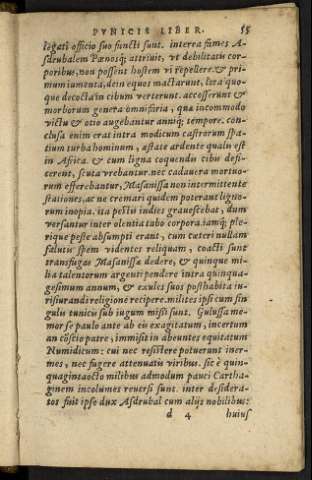 PVNICIS LIBER. 55
legati officio suo functi sunt. interea fames A-
sdrubalem Pœnosq; attriuit, vt debilitatis cor-
poribus, non possent hostem vi repellere. & pri-
mum iumenta, dein equos mactarunt, lora quo-
que decocta in cibum verterunt. accesserunt &
morborum genera omnifaria, quæ incommodo
victu & otio augebantur anniq; tempore. con-
clusa enim erat intra modicum castrorum spa-
tium turba hominum, æstate ardente qualis est
in Africa. & cum ligna coquendis cibis defi-
cerent, scuta vrebantur. nec cadauera mortuo-
rum efferebantur, Masanissa non intermittente
stationes, ac ne cremari quidem poterant ligno-
rum inopia. ita pestis indies grauescebat, dum
versantur inter olentia tabo corpora. iamq; ple-
rique peste absumpti erant, cum cæteri nullam
salutis spem videntes reliquam, coacti sunt
transfugas Masanissæ dedere, & quinque mi-
lia talentorum argenti pendere intra quinqua-
gesimum annum, & exules suos posthabita iu-
risiurandi religione recipere. milites ipsi cum sin-
gulis tunicis sub iugum missi sunt. Gulussa me-
mor se paulo ante ab eis exagitatum, incertum
an cōscio patre, immisit in abeuntes equitatum
Numidicum: cui nec resistere potuerunt iner-
mes, nec fugere attenuatis viribus. sic è quin-
quagintaocto milibus admodum pauci Cartha-
ginem incolumes reuersi sunt. inter desidera-
tos fuit ipse dux Asdrubal cum alijs nobilibus:
d 4 huius